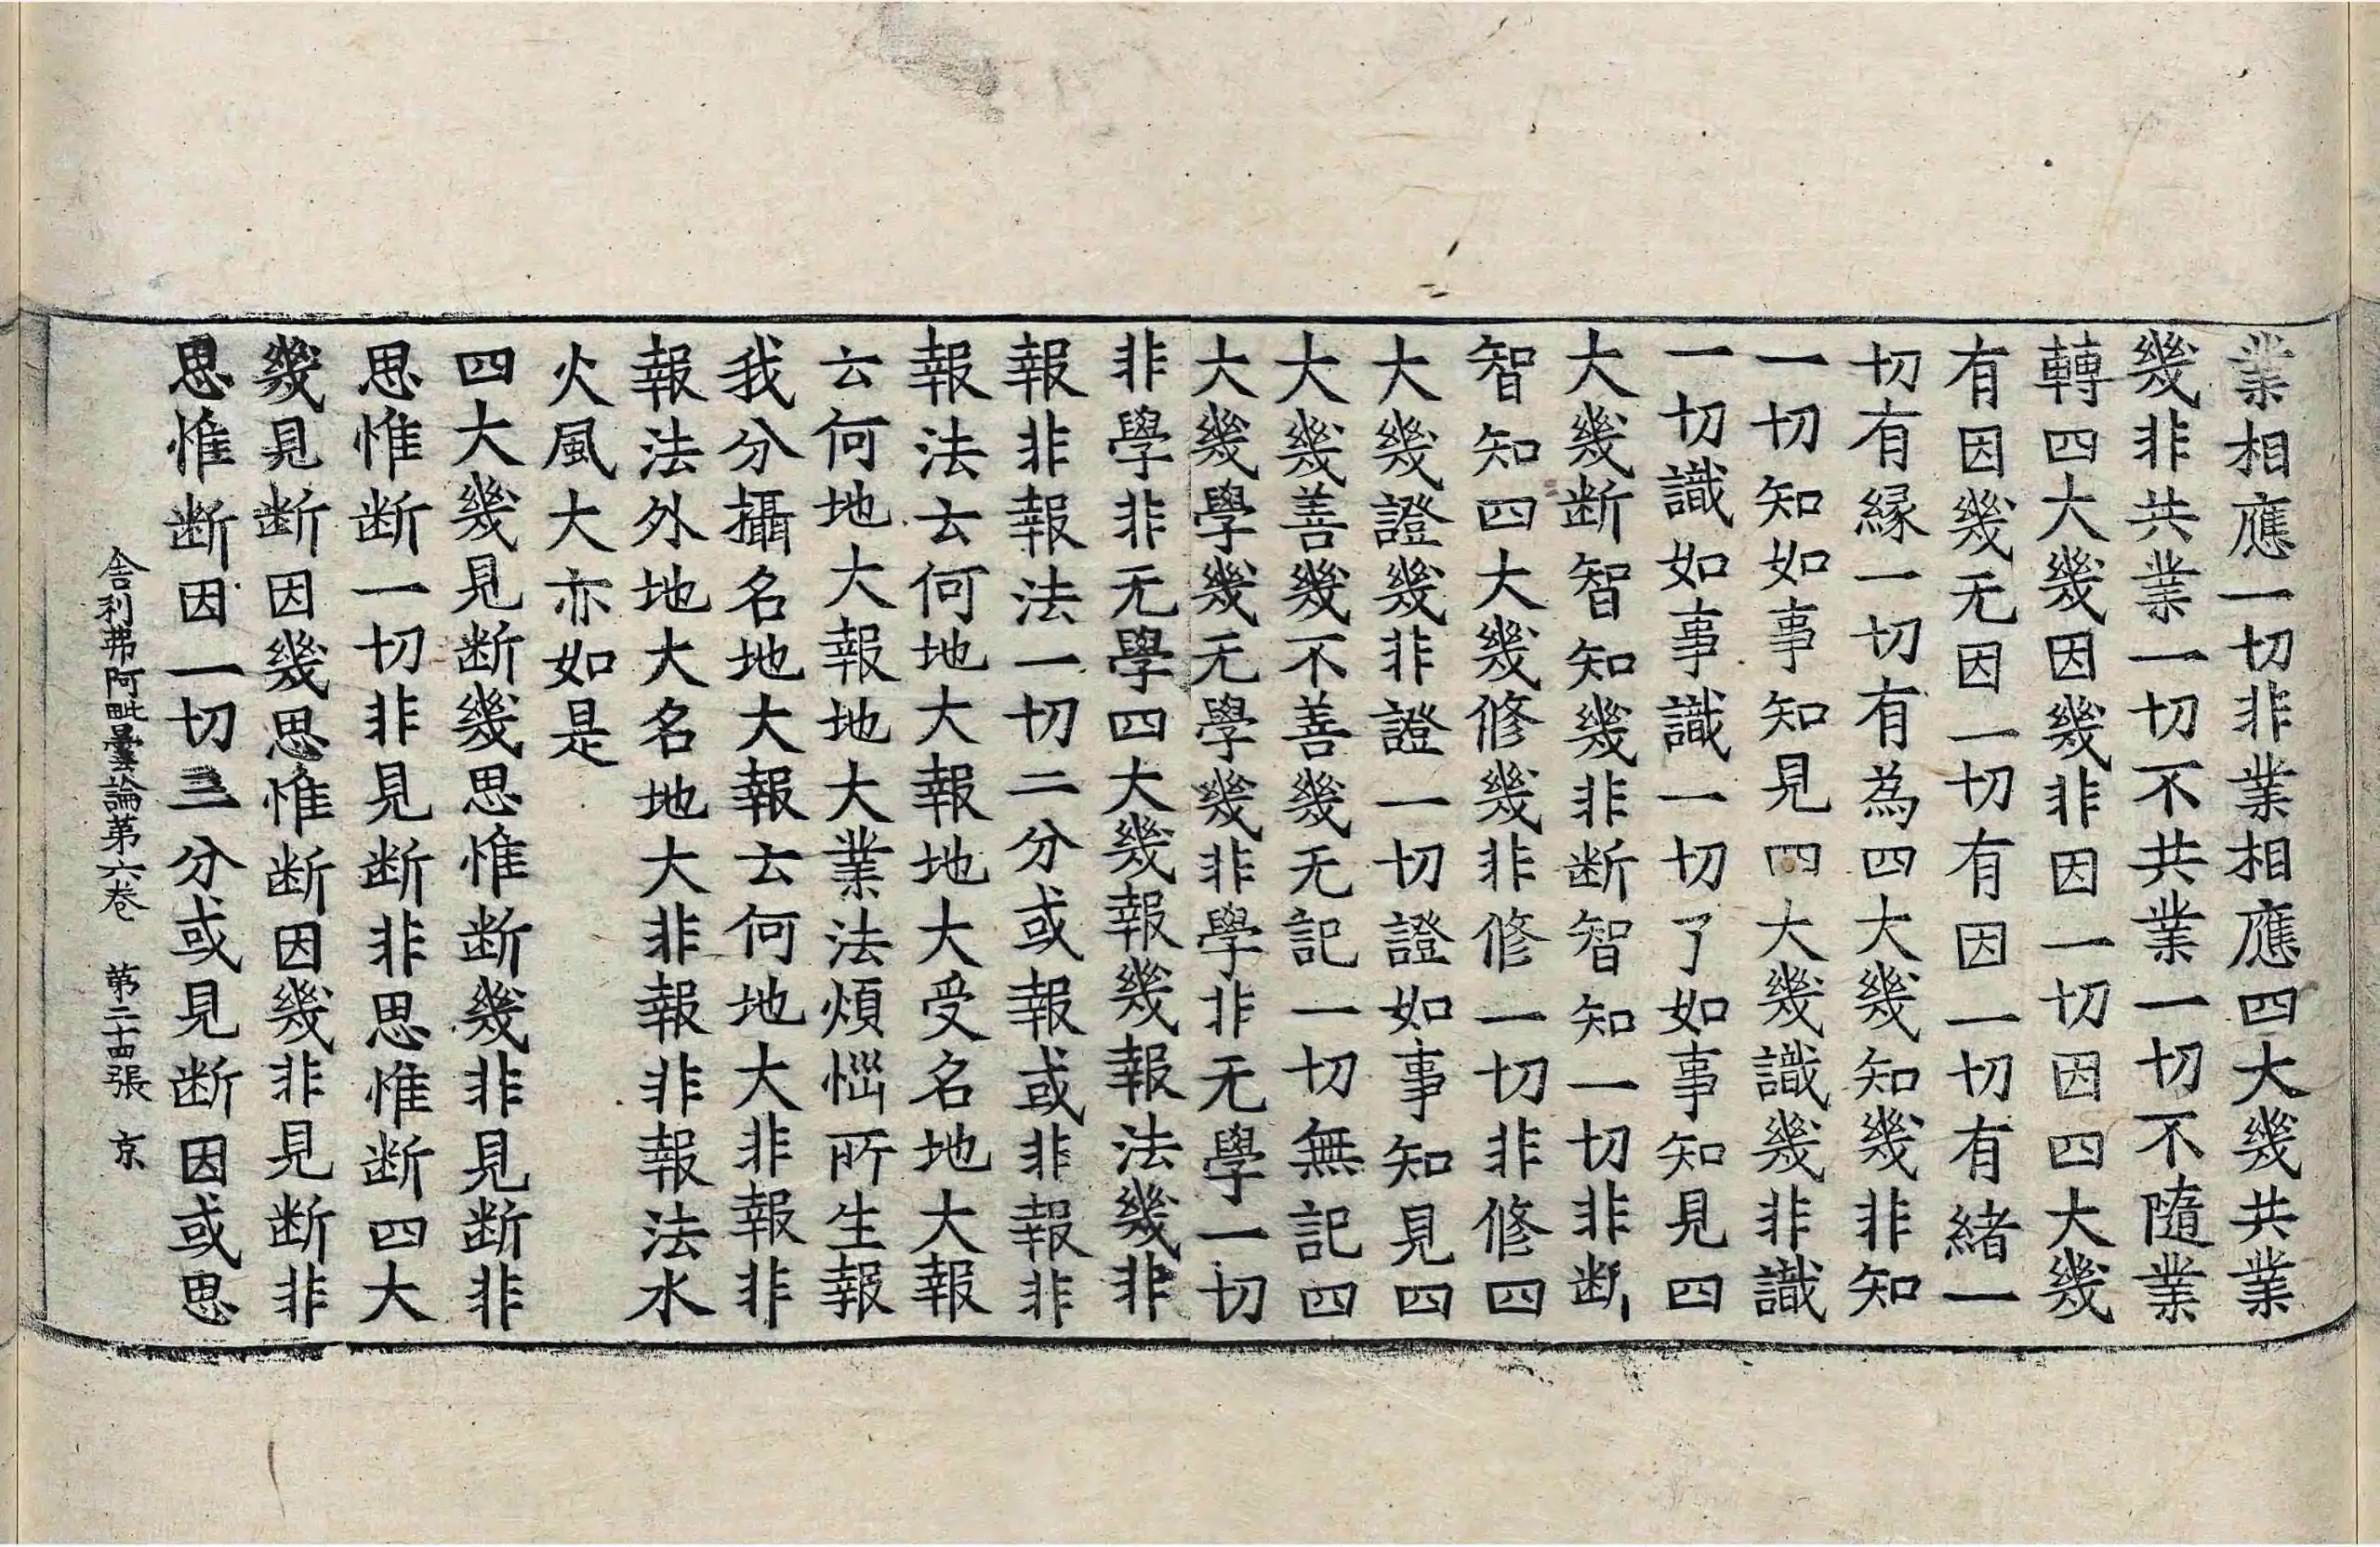 業相應一切非業相應四大幾共業
幾非共業一切不共業一切不隨業
轉四大幾因幾非因一切因四大幾
有因幾无因一切有因一切有緒一
切有縁一切有為四大幾知幾非知
一切知如事知見四大幾識幾非識
一切識如事識一切了如事知見四
大幾断智知幾非断智知一切非断
智知四大幾修幾非修一切非修四
大幾證幾非證一切證如事知見四
大幾善幾不善幾无記一切無記四
大幾學幾无學幾非學非无學一切
非學非无學四大幾報幾報法幾非
報非報法一切二分或報或非報非
報法云何地大報地大受名地大報
云何地大報地大業法煩惱所生報
我分攝名地大報云何地大非報非
報法外地大名地大非報非報法水
火風大亦如是
四大幾見断幾思惟断幾非見断非
思惟断一切非見断非思惟断四大
幾見断因幾思惟断因幾非見断非
思惟断因一切三分或見断因或思
舎利弗阿毗曇論第六卷 第二十四張 京